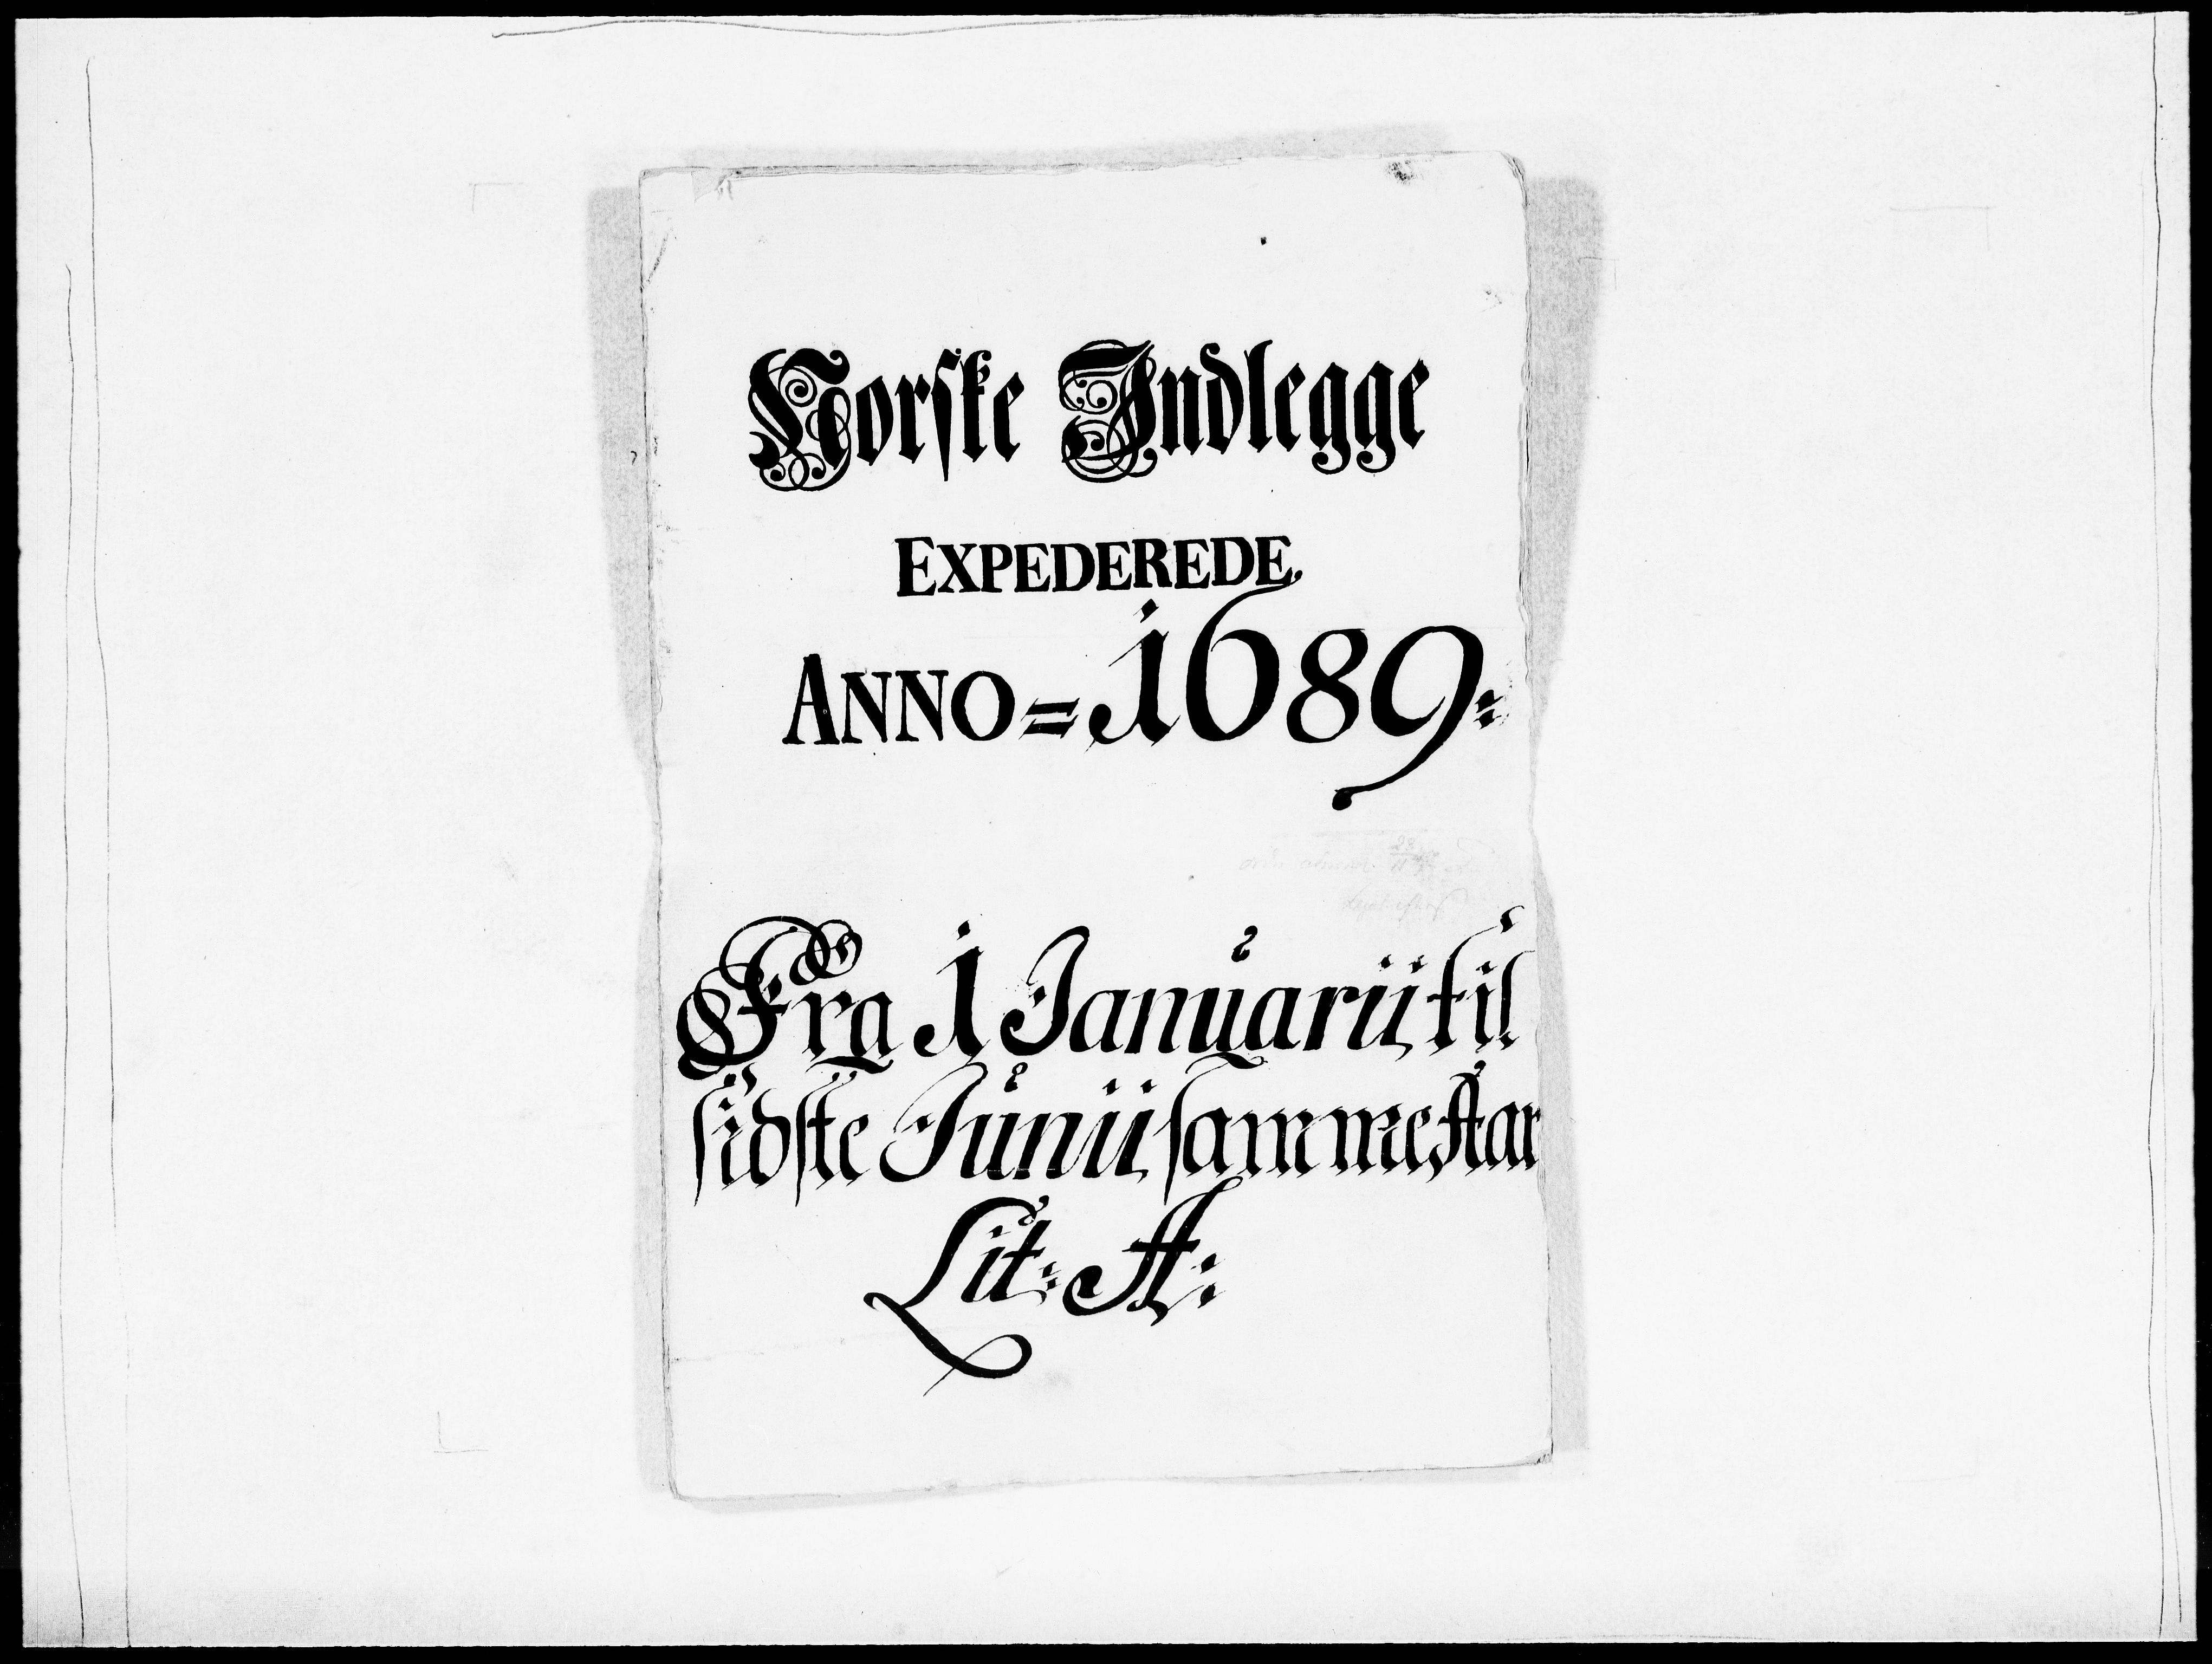 Norske Indlegge
EXPEDEREDE.
ANNO=1689:
Fra 1 Januarii til
sidste Junii samme Aar
Lit: A: